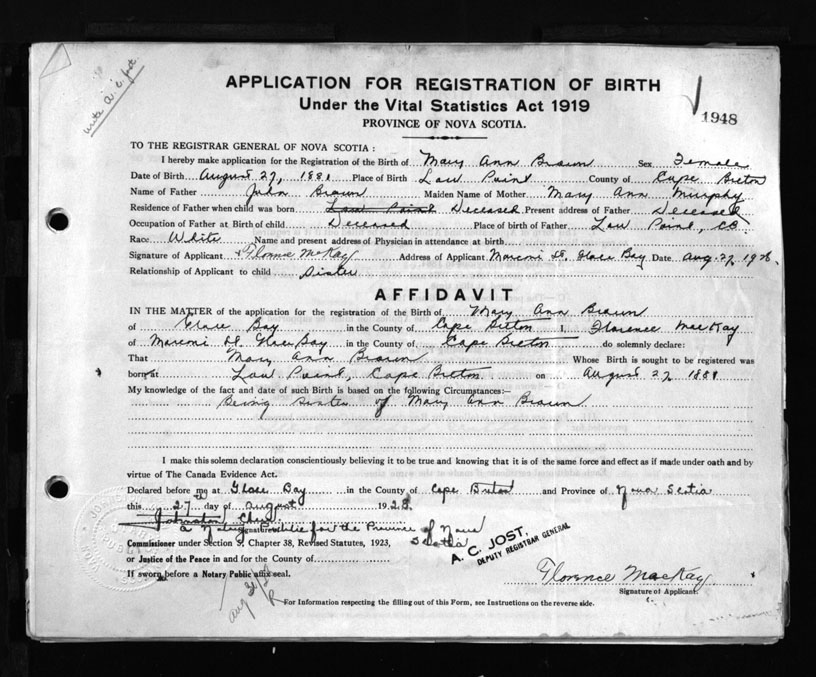 write A. C. Jost
APPLICATION FOR REGISTRATION OF BIRTH
Under the Vital Statistics Act 1919
PROVINCE OF NOVA SCOTIA.
1948
TO THE REGISTRAR GENERAL OF NOVA SCOTIA :
I hereby make application for the Registration of the Birth of Mary Ann Braun Sex Female
Date of Birth August 27, 1881 Place of Birth Low Point County of Cape Breton
Name of Father John Braun Maiden Name of Mother Mary Ann Murphy
Residence of Father when child was born Low Point Deceased Present address of Father Deceased
Occupation of Father at Birth of child Deceased Place of birth of Father Low Point, CB
Race White Name and present address of Physician in attendance at birth
Signature of Applicant Florence McKay Address of Applicant Marconi St. Glace Bay Date Aug. 27 1928.
Relationship of Applicant to child Sister
AFFIDAVIT
IN THE MATTER of the application for the registration of the Birth of Mary Ann Braun
of Glace Bay in the County of Cape Breton I, Florence MacKay
of Marconi St. Glace Bay in the County of Cape Breton do solemnly declare:
That Mary Ann Braun Whose Birth is sought to be registered was
born at Low Point, Cape Breton on August 27 1881
My knowledge of the fact and date of such Birth is based on the following Circumstances:—
Being sister of Mary Ann Braun
I make this solemn declaration conscientiously believing it to be true and knowing that it is of the same force and effect as if made under oath and by
virtue of The Canada Evidence Act.
Declared before me at Glace Bay in the County of Cape Breton and Province of Nova Scotia
this 27 day of August 1928
a Notary Public for the Province of Nova Scotia
Commissioner under Section 9, Chapter 38, Revised Statutes, 1923,
A. C. JOST,
DEPUTY REGISTRAR GENERAL
or Justice of the Peace in and for the County of
If sworn before a Notary Public affix seal.
Florence MacKay
Signature of Applicant.
Aug 31/28
For Information respecting the filling out of this Form, see Instructions on the reverse side.